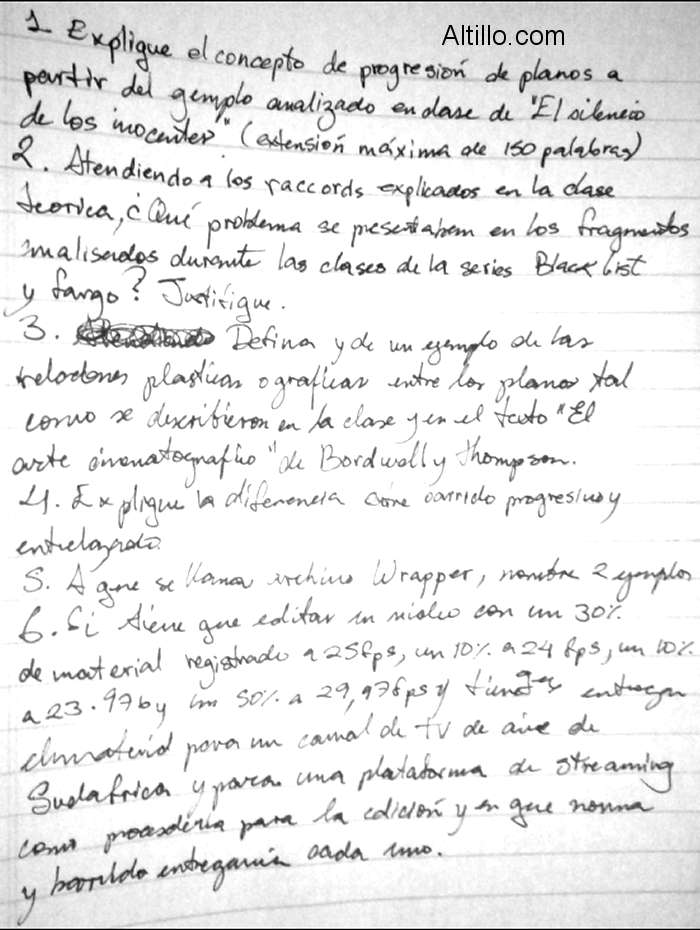 Altillo.com
1 Explique el concepto de progresión de planos a
partir del ejemplo analizado en clase de "El silencio
de los inocentes" (extensión máxima de 150 palabras)
2. Atendiendo a los raccords explicados en la clase
teorica, ¿Qué problema se presentaben en los fragmentos
analisados durante las clases de la series Black list
y fargo? Justifique.
3. Defina y de un ejemplo de las
relaciones plasticas o graficas entre los planos tal
como se describieron en la clase y en el texto "El
arte cinematografico" de Bordwell y Thompson.
4. Explique la diferencia entre barrido progresivo y
entrelazado.
5. A que se llama archivo Wrapper, nombre 2 ejemplos
6. Si tiene que editar un video con un 30%
de material registrado a 25fps, un 10% a 24 fps, un 10%
a 23.976 y un 50% a 29,97fps y tiene que entregar
el material para un canal de tv de aire de
Sudafrica y para una plataforma de streaming
como procederia para la edición y en que norma
y barrido entregaria cada uno.